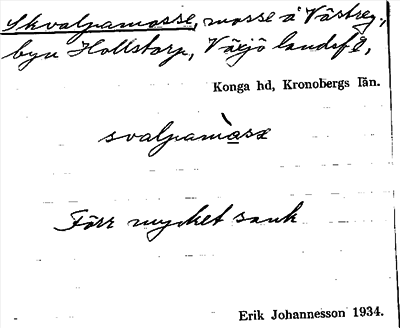 Skvalpamosse, mosse å Västreg.,
byn Hollstorp, Växjö landsf.,
Konga hd, Kronobergs län.
svalpamòsə
Förr mycket sank
Erik Johannesson 1934.